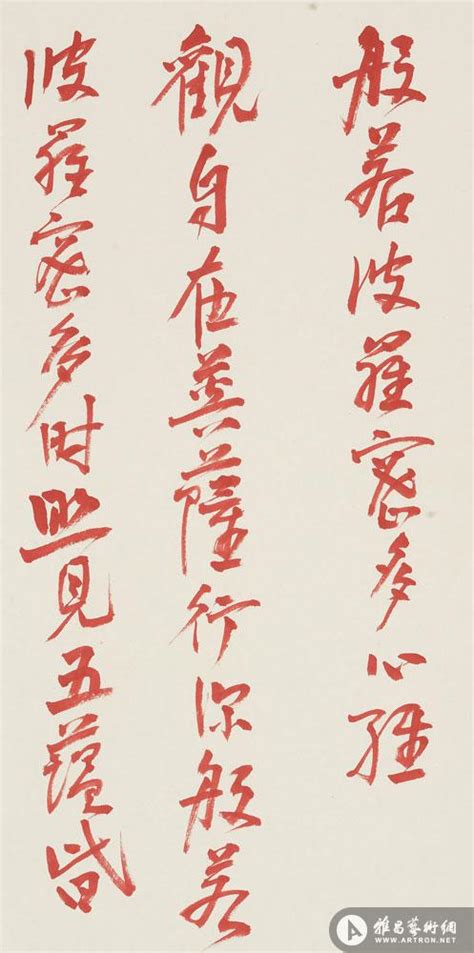 般若波羅密多心經
觀自在菩薩行深般若
波羅密多時照見五蘊皆
雅昌藝術網
WWW.ARTRON.NET